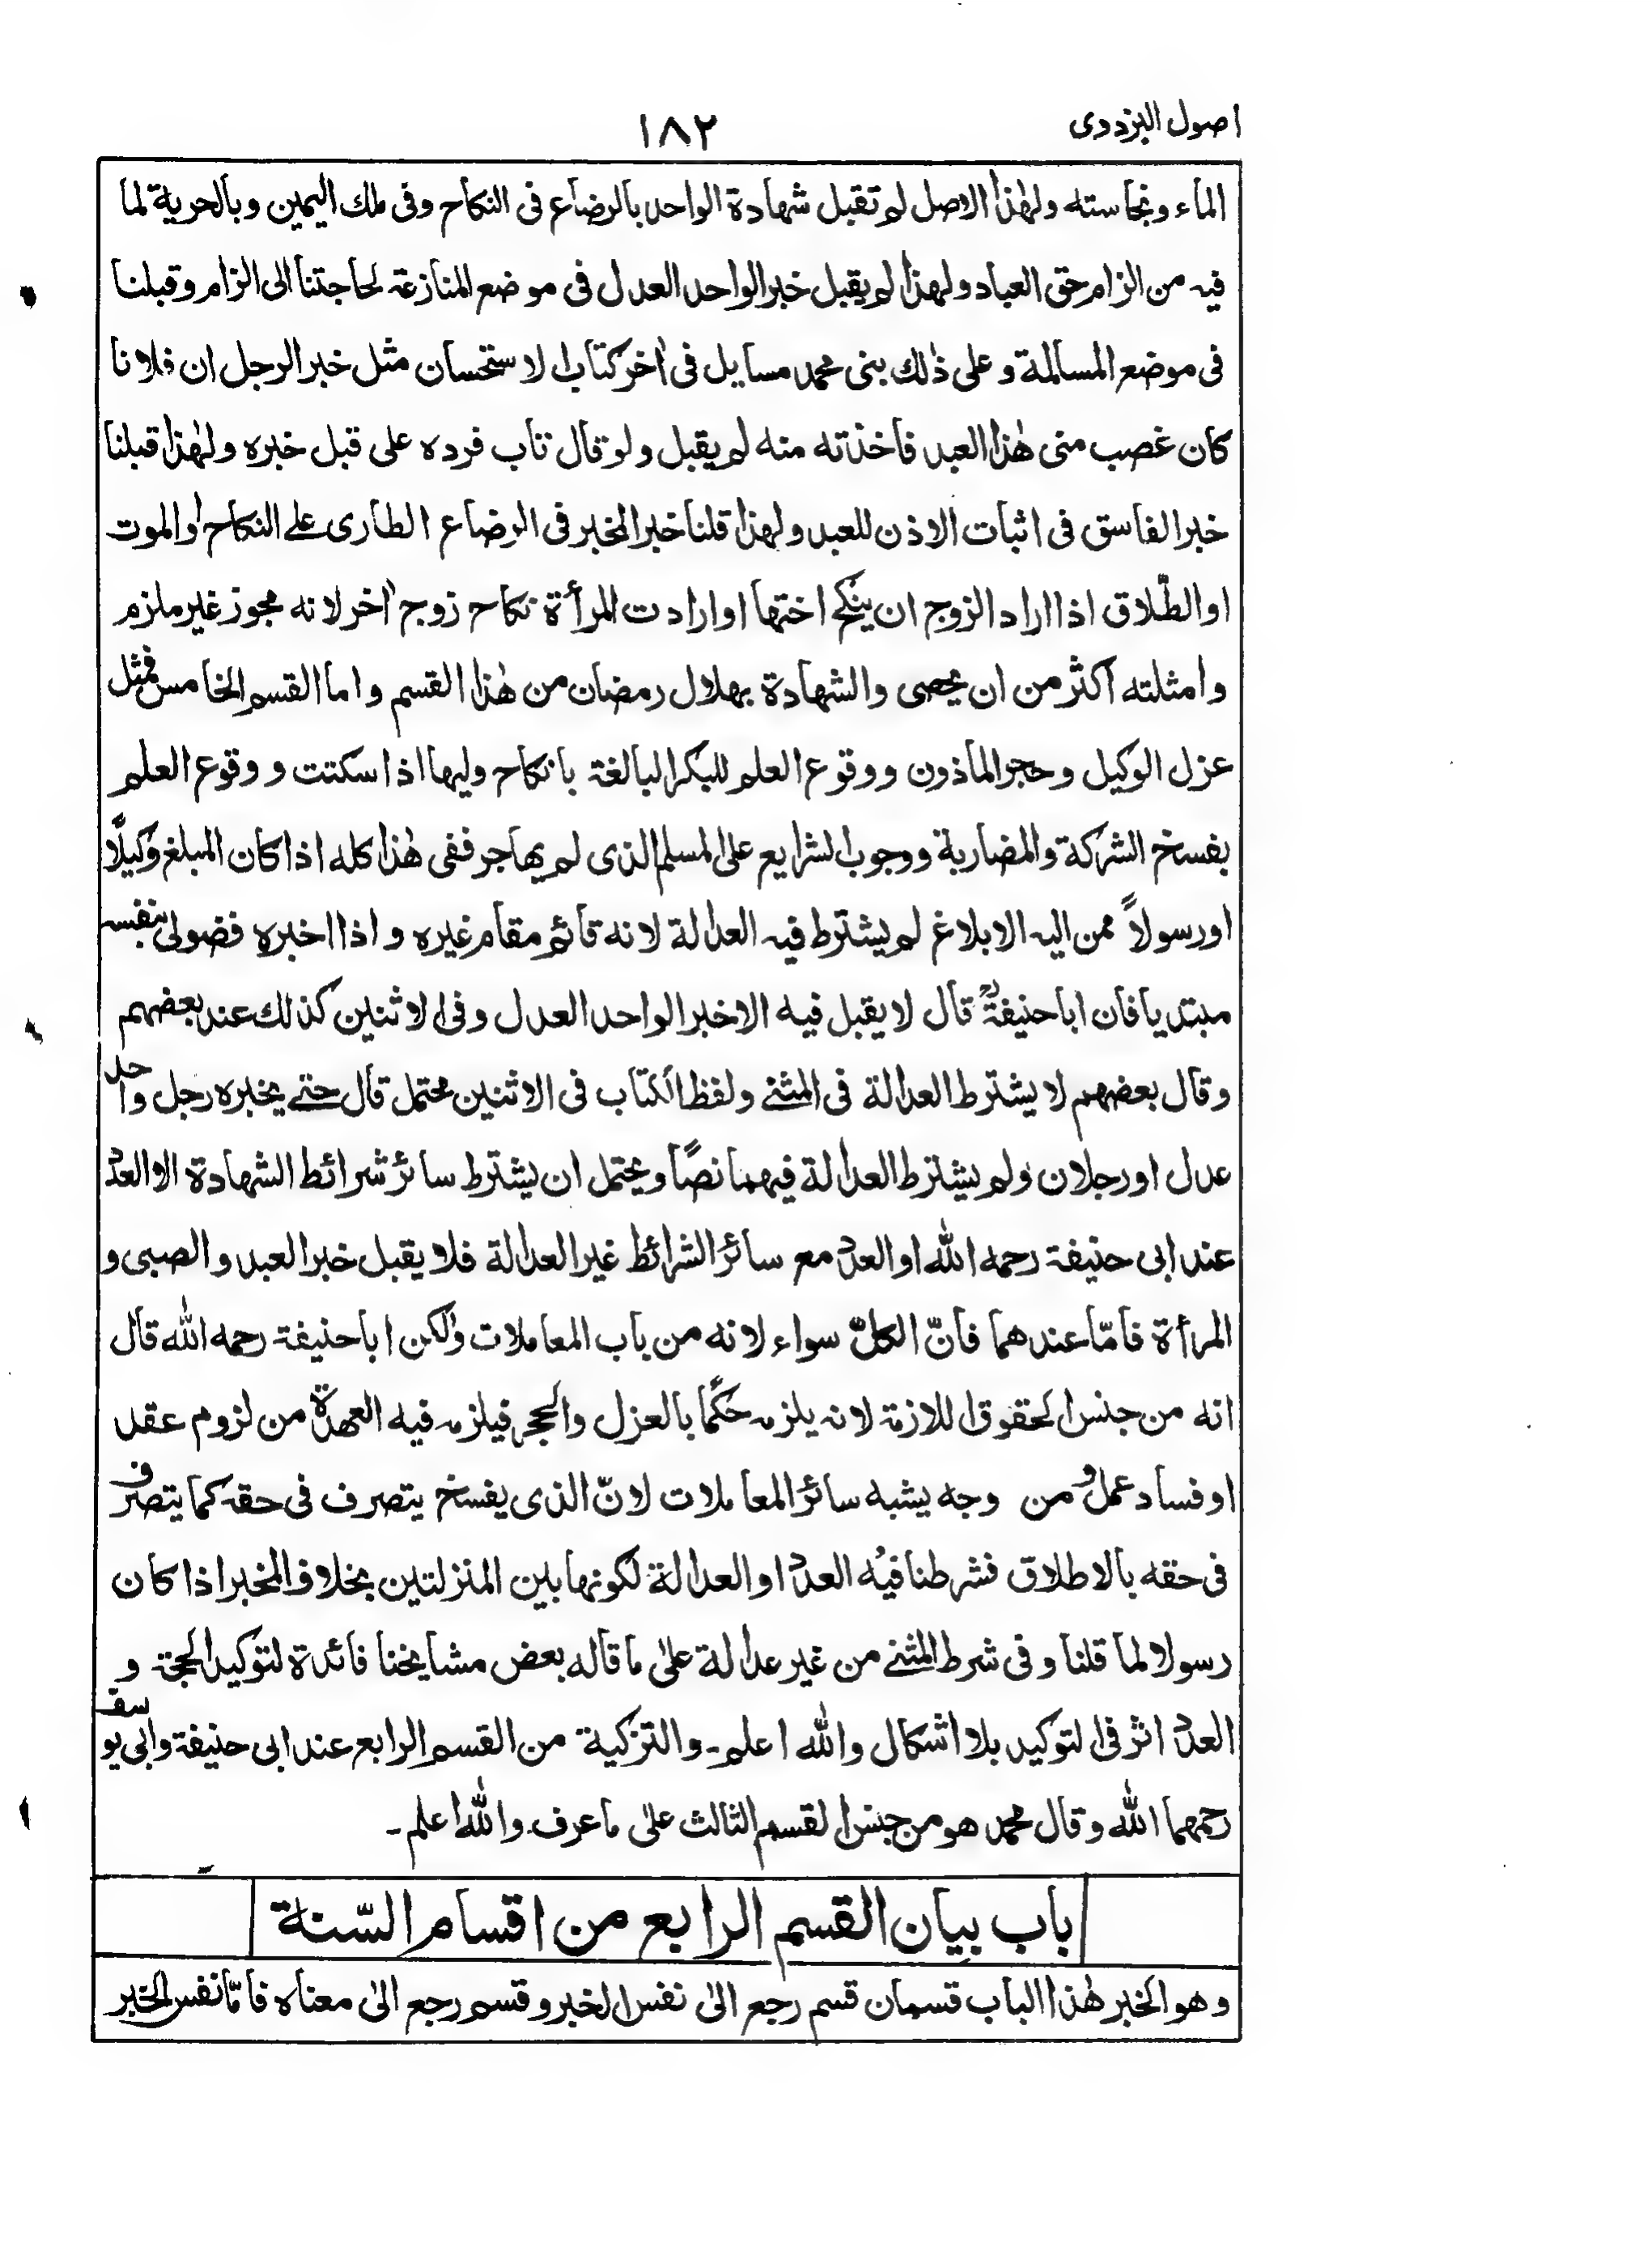 اصول البزدوی
١٨٢
الماء ونجاسته ولهٰذا الاصل لم تقبل شهادة الواحد بالرضاع فی النكاح وفی ملك اليمين وبالحرية لما
فيه من الزام حق العباد ولهذا لم يقبل خبر الواحد العدل فی موضع المنازعة لحاجتنا الی الزام وقبلنا
فی موضع المسالمة و علی ذٰلك بنی محمد مسايل فی اٰخر كتاب الاستحسان مثل خبر الرجل ان فلانا
كان غصب منی هٰذا العبد فاخذته منه لم يقبل ولو قال تاب فرده علی قبل خبره ولهٰذا قبلنا
خبر الفاسق فی اثبات الاذن للعبد ولهذا قلنا خبر المخبر فی الرضاع الطاری علے النكاح او الموت
او الطّلاق اذا اراد الزوج ان ينكح اختها او ارادت المرأة نكاح زوج اٰخر لانه مجوز غير ملزم
وامثلته اكثر من ان يحصی والشهادة بهلال رمضان من هٰذا القسم واما القسم الخامس فمثل
عزل الوكيل وحجر الماذون ووقوع العلم للبكر البالغة بانكاح وليها اذا سكتت ووقوع العلم
بفسخ الشركة والمضاربة ووجوب الشرايع علی المسلم الذی لم يهاجر ففی هٰذا كله اذا كان المبلغ وكيلًا
او رسولاً ممن اليه الابلاغ لم يشترط فيه العدالة لانه قائم مقام غيره واذا اخبره فضولی بنفسه
مبتديا فان ابا حنيفةؒ قال لا يقبل فيه الا خبر الواحد العدل وفی الاثنين كذلك عند بعضهم
وقال بعضهم لا يشترط العدالة فی المثنے ولفظ الكتاب فی الاثنين محتمل قال حتے يخبره رجل واحد
عدل او رجلان ولم يشترط العدالة فيهما نصًا ويحتمل ان يشترط سائر شرائط الشهادة الا العدد
عند ابی حنيفة رحمه اللّٰه او العدد مع سائر الشرائط غير العدالة فلا يقبل خبر العبد والصبی و
المرأة فامّا عندهما فانّ الكلّ سواء لانه من باب المعاملات ولٰكن ابا حنيفة رحمه اللّٰه قال
انه من جنس الحقوق اللازمة لانه يلزمه حكمًا بالعزل والحجر فيلزمه فيه العهدة من لزوم عقد
او فساد عمل و من وجه يشبه سائر المعاملات لانّ الذی يفسخ يتصرف فی حقه كما يتصرف
فی حقه بالاطلاق فشرطنا فيه العدد او العدالة لكونها بين المنزلتين بخلاف المخبر اذا كان
رسولا لما قلنا وفی شرط المثنے من غير عدالة علیٰ ما قاله بعض مشايخنا فائدة لتوكيد الحجة و
العدد اثر فی التوكيد بلا اشكال واللّٰه اعلم۔ والتزكية من القسم الرابع عند ابی حنيفة وابی يوسف
رحمهما اللّٰه وقال محمد هو من جنس القسم الثالث علیٰ ما عرف۔ واللّٰه اعلم۔
باب بيان القسم الرابع من اقسام السّنة
وهو الخبر هٰذا الباب قسمان قسم رجع الیٰ نفس الخبر وقسم رجع الیٰ معناه فامّا نفس الخبر